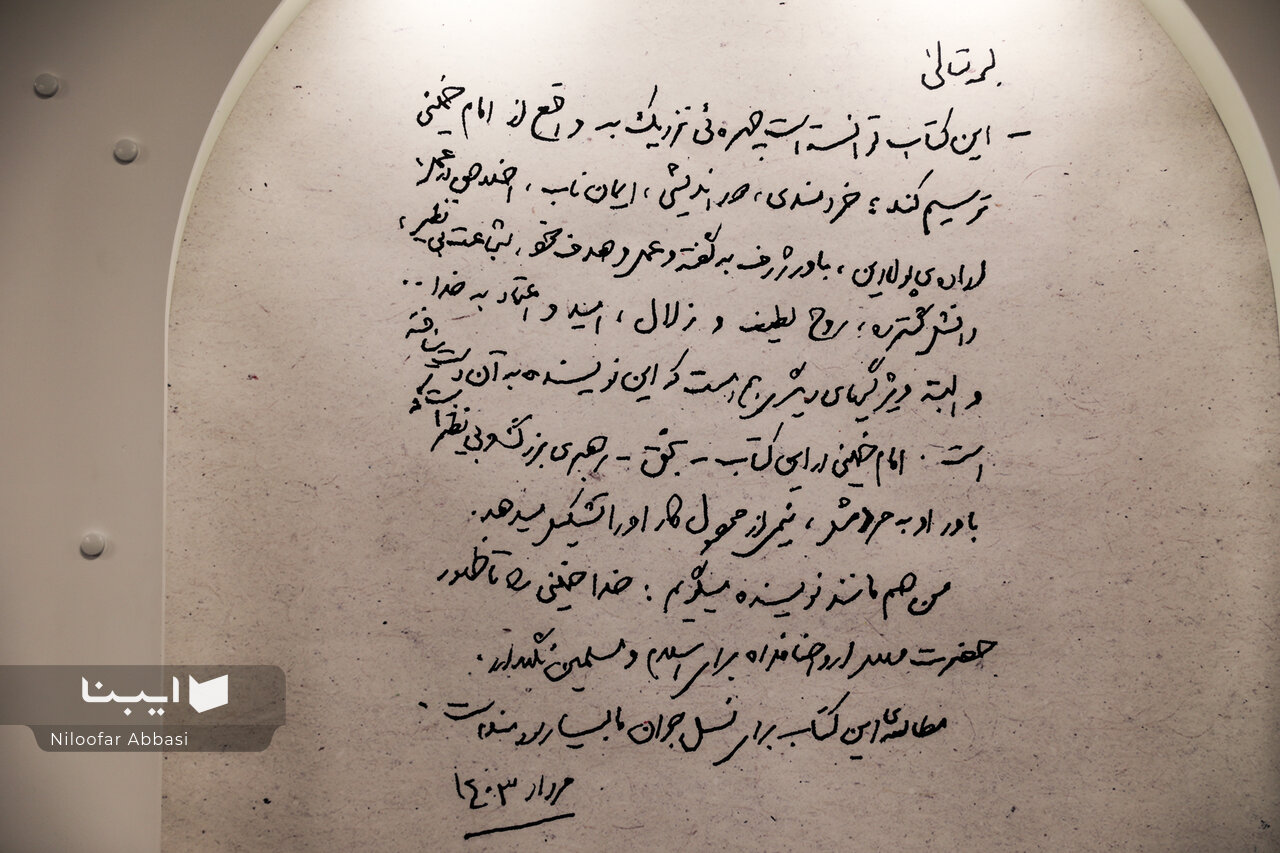 بسمه تعالی
– این کتاب توانسته است چهره‌ئی نزدیک به واقع از امام خمینی
ترسیم کند؛ خردمندی، دوراندیشی، ایمان ناب، اخلاص در عمل،
اراده‌ی پولادین، باور ژرف به گفته و عمل و هدف خود، شجاعت بی نظیر،
دانش گسترده، روح لطیف و زلال، امید و اعتماد به خدا..
و البته ویژگیهای دیگری هم هست که این نویسنده به آن دست نیافته
است. امام خمینی در این کتاب – بحق – رهبری بزرگ و بی نظیر است که
باور او به مردمش، نیمی از محصول کار او را تشکیل میدهد.
من هم مانند نویسنده میگویم: خدا خمینی را تا ظهور
حضرت مهدی ارواحنا فداه برای اسلام و مسلمین نگهدارد.
مطالعه‌ی این کتاب برای نسل جوان ما بسیار سودمند است.
مرداد ۱۴۰۳
ایبنا
Niloofar Abbasi